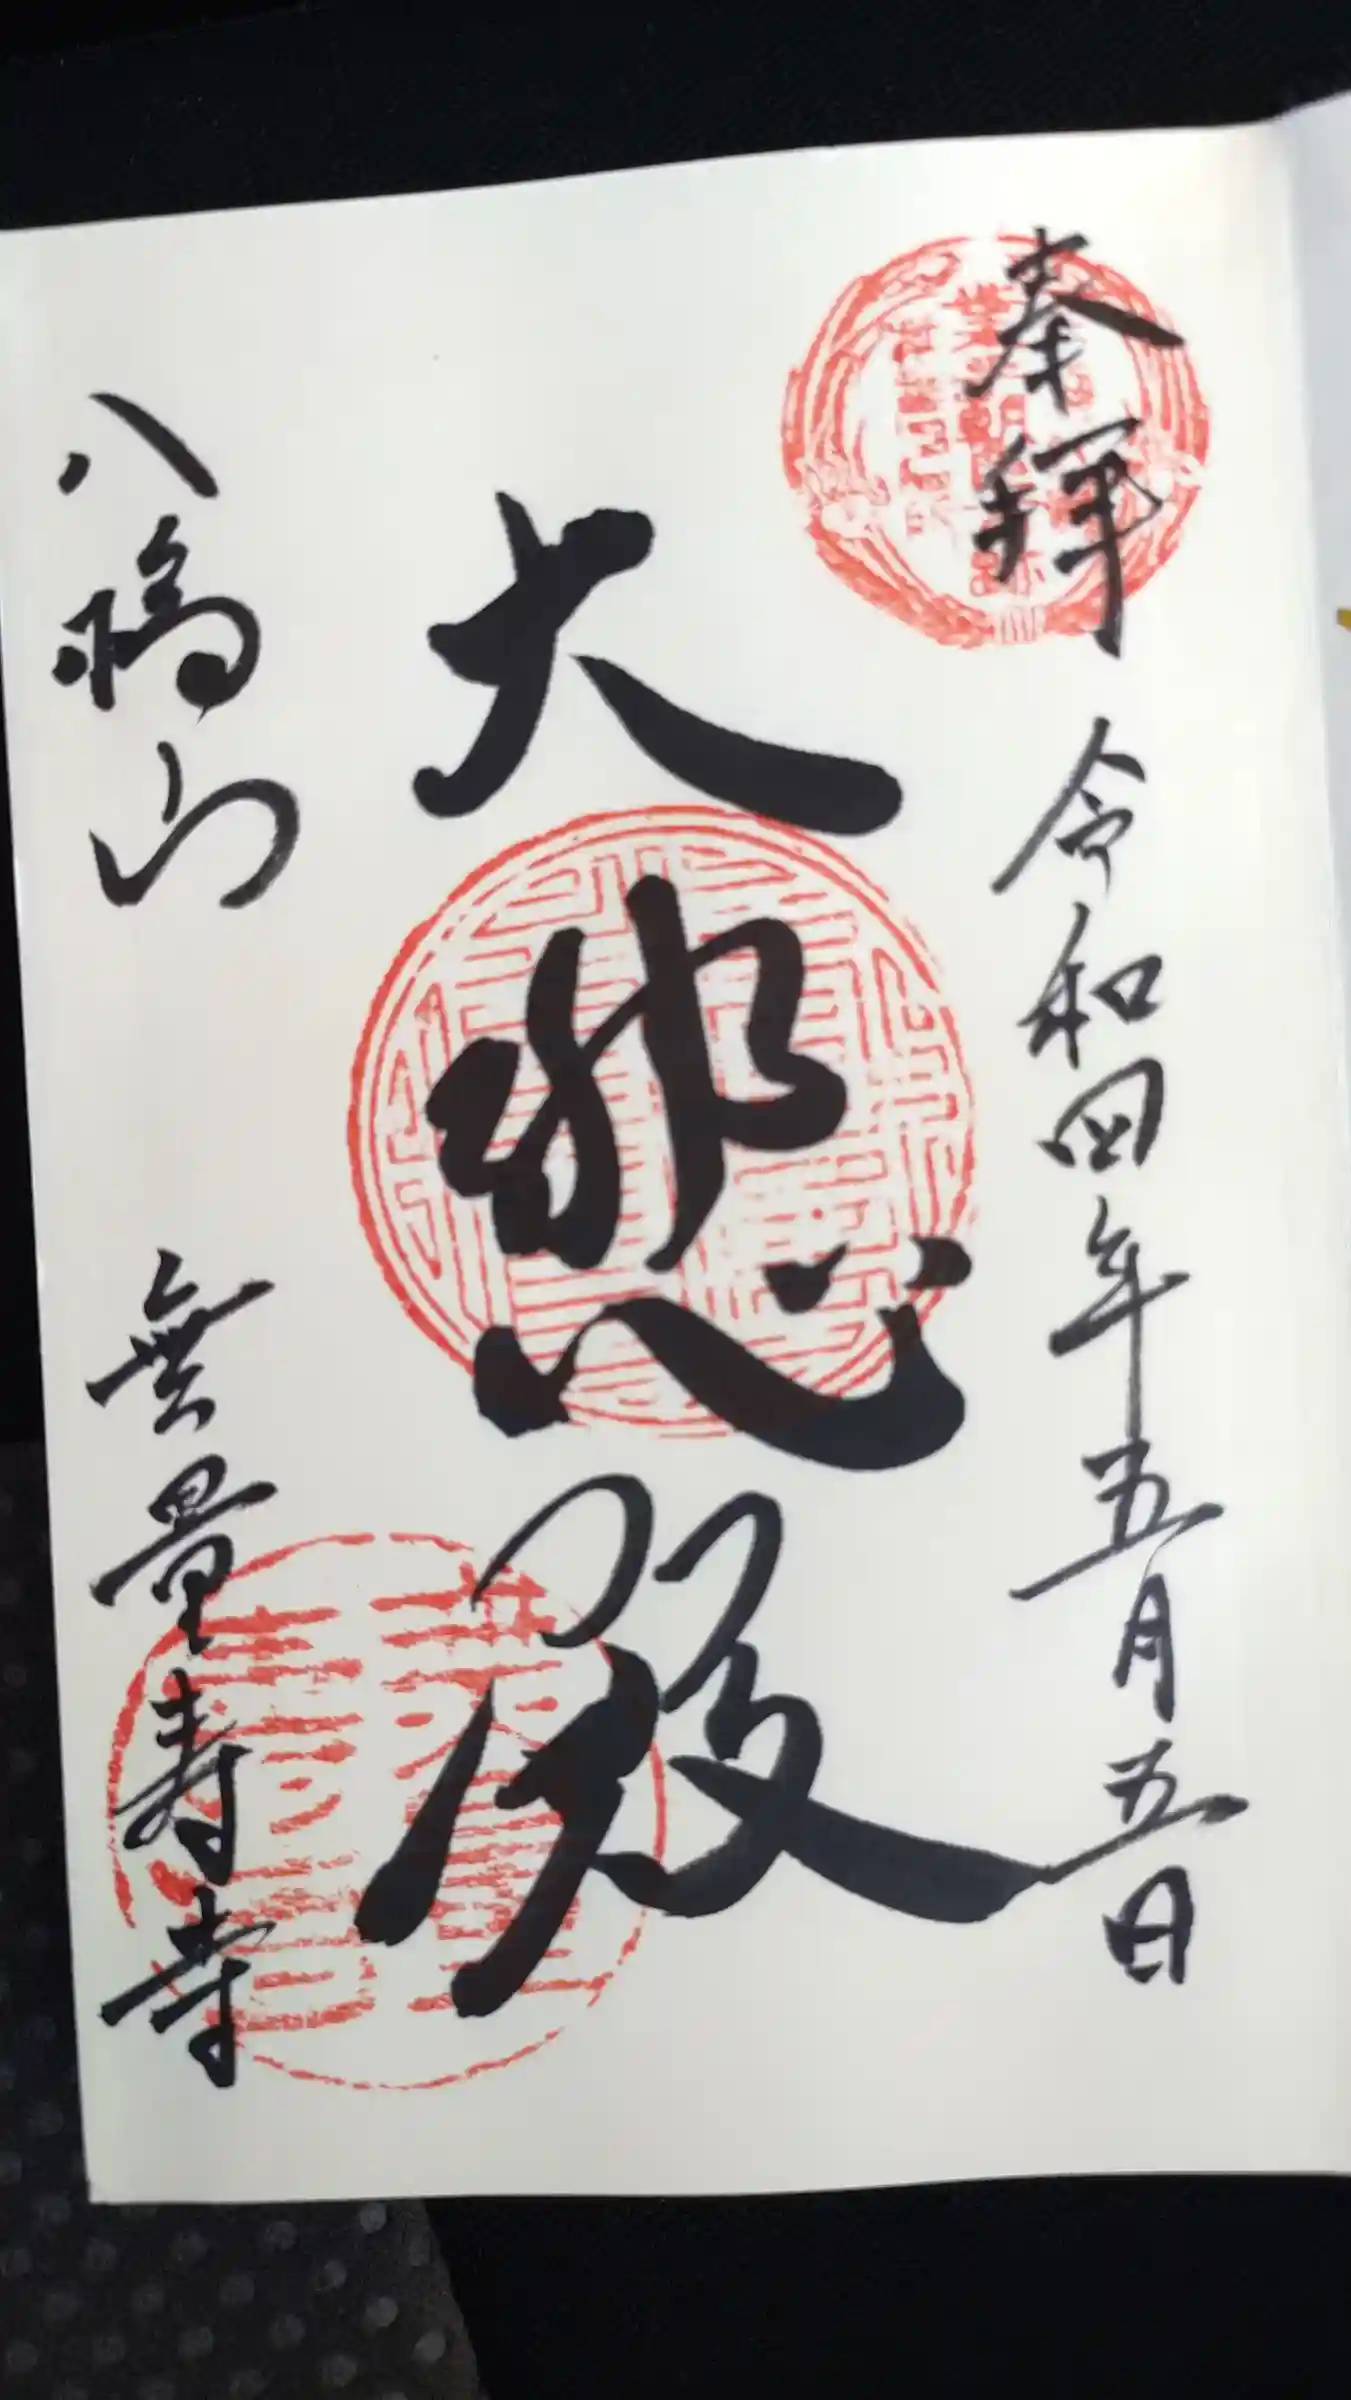 奉拝
令和四年五月五日
大悲殿
八橋山
無量壽寺